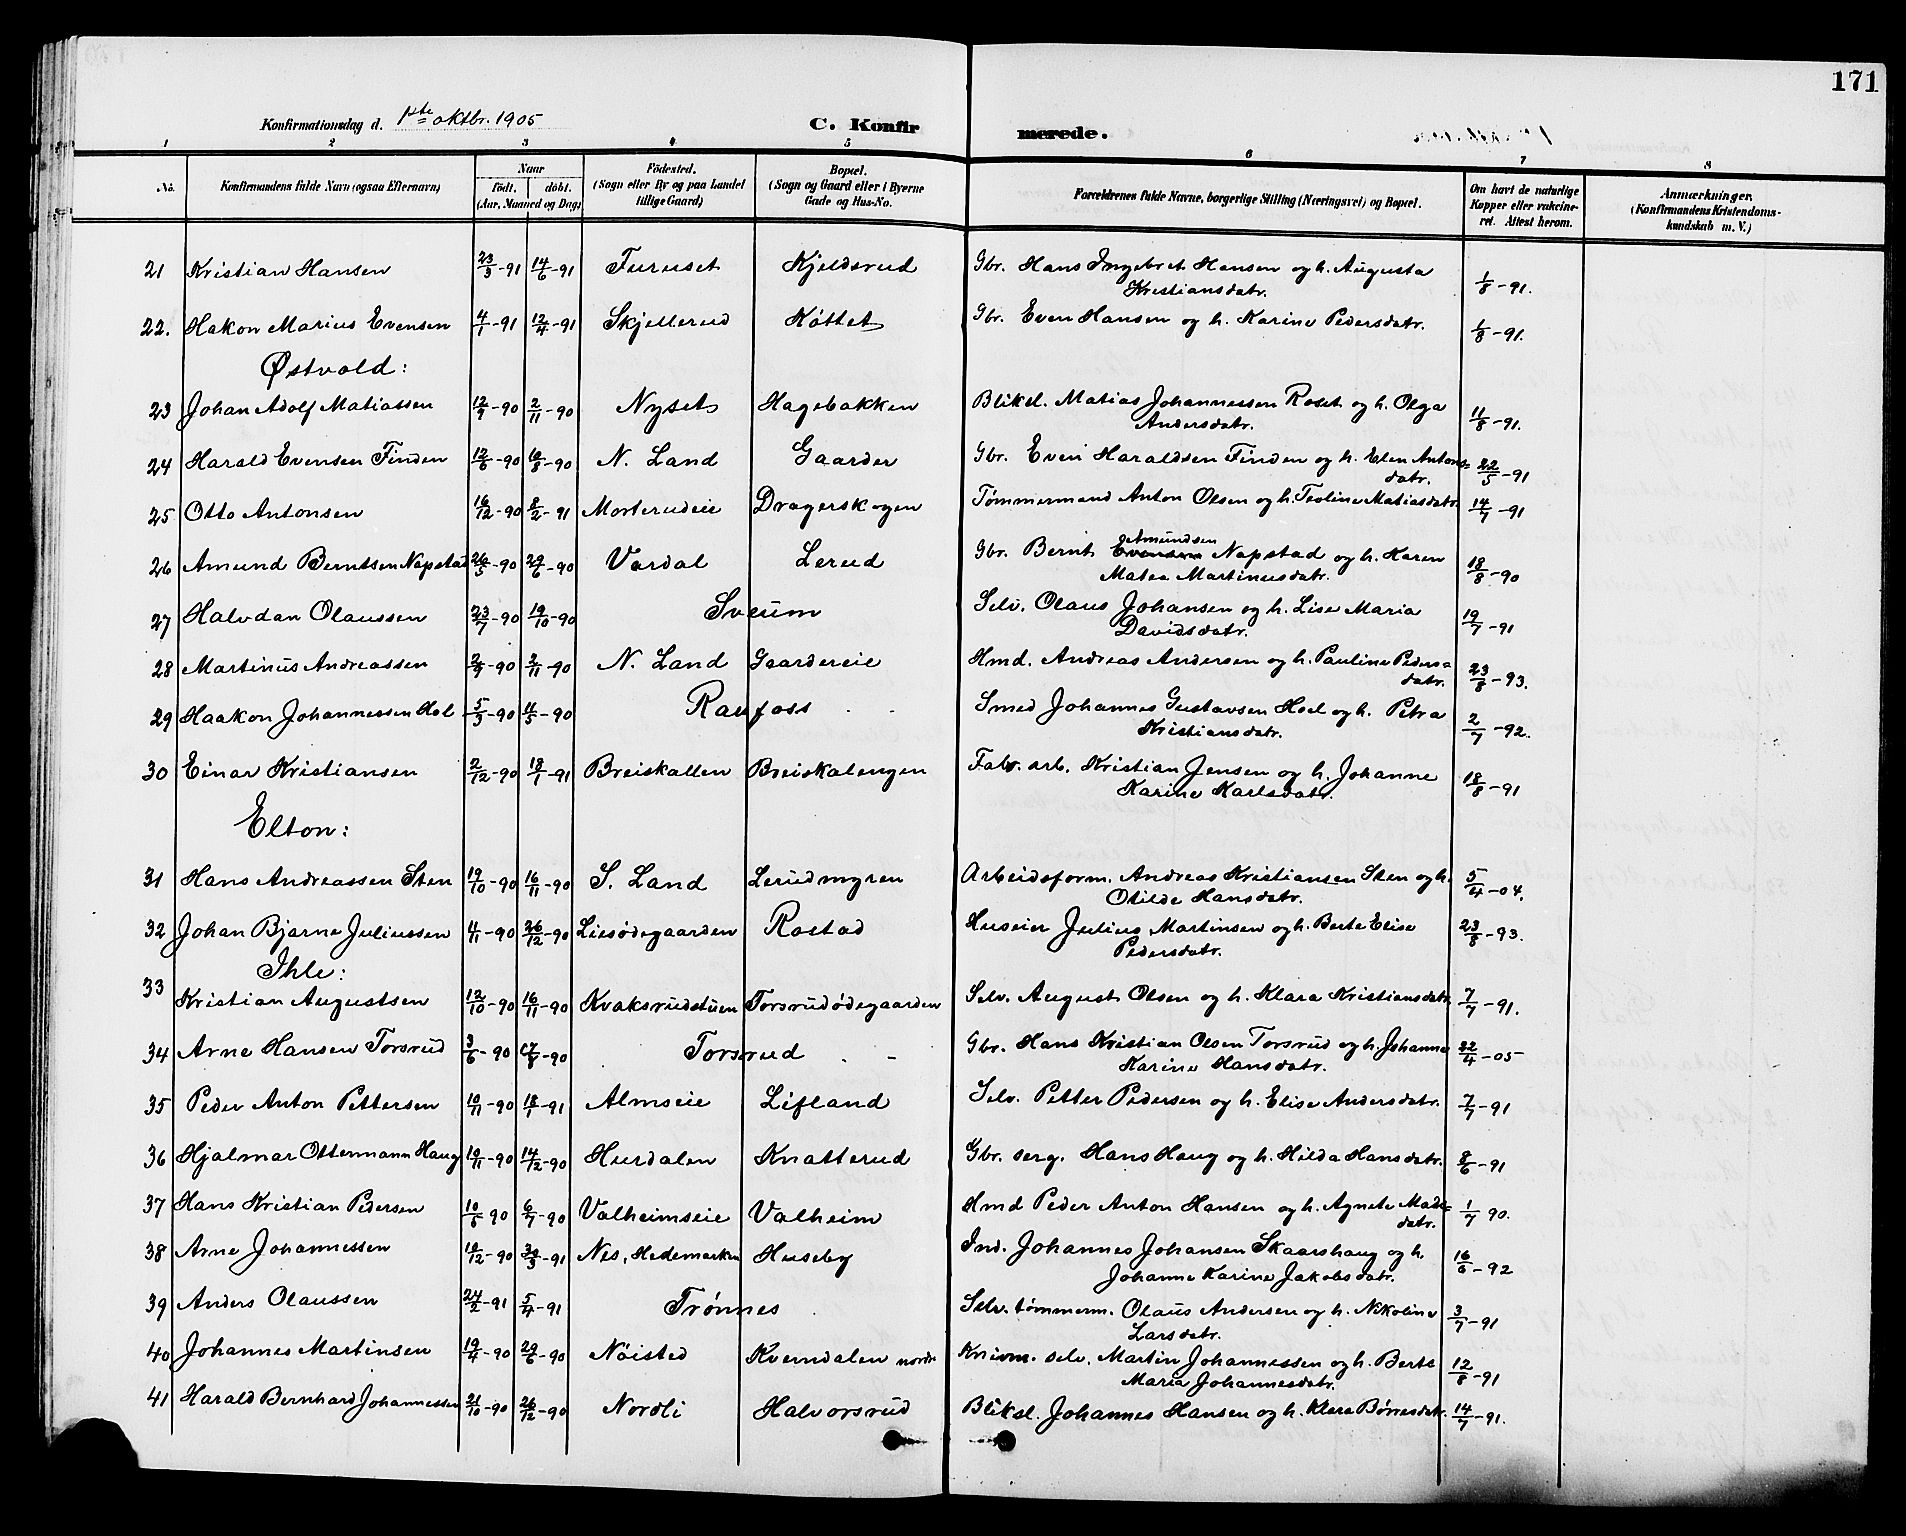 171
Konfirmationsdag d. 1ste oktbr. 1905 C. Konfirmerede.
1 2 3 4 5 6 7 8
No. Konfirmandens fulde Navn (ogsaa Efternavn) Naar födt. döbt. (Aar, Maaned og Dag) Födested. (Sogn eller By og paa Landet tillige Gaard) Bopæl. (Sogn og Gaard eller i Byerne Gade og Hus-No. Forældrenes fulde Navne, borgerlige Stilling (Næringsvei) og Bopæl. Om havt de naturlige Kopper eller vakcineret. Attest herom. Anmærkninger. (Konfirmandens Kristendomskundskab m. V.)
21 Kristian Hansen 23/3-91 14/6-91 Furuset Kjeldsrud Gbr. Hans Ingebret Hansen og h. Augusta Kristiansdatr. 1/8-91.
22. Hakon Marius Evensen 4/1-91 12/4-91 Skjellerud Köttet Gbr. Even Hansen og h. Karine Pedersdatr. 1/8-91.
Østvold:
23 Johan Adolf Matiassen 12/9-90 2/11-90 Nyset Hagebakken Bliksl. Matias Johannessen Roset og h. Olga Andersdatr. 11/8-91.
24 Harald Evensen Finden 12/6-90 10/8-90 N. Land Gaarder Gbr. Even Haraldsen Finden og h. Elen Antonsdatr. 22/5-91
25 Otto Antonsen 16/12-90 8/2-91 Morterudeie Dragerskogen Tømmermand Anton Olsen og h. Teoline Matiasdatr. 14/7-91
26 Amund Berntsen Napstad 26/5-90 29/6-90 Vardal Lerud Gbr. Bernt Evensen Amundsen Napstad og h. Karen Matea Martinusdatr. 18/8-90
27 Halvdan Olaussen 23/7-90 19/10-90 Sveum Selv. Olaus Johansen og h. Lise Maria Davidsdatr. 19/7-91
28 Martinus Andreassen 2/9-90 2/11-90 N. Land Gaardereie Hmd. Andreas Andersen og h. Pauline Pedersdatr. 23/8-93.
29 Haakon Johannessen Hol 5/3-90 11/5-90 Raufoss Smed Johannes Gustavsen Hoel og h. Petra Kristiansdatr. 2/7-92.
30 Einar Kristiansen 2/12-90 18/1-91 Breiskallen Breiskalengen Fabr. arb. Kristian Jensen og h. Johanne Karine Karlsdatr. 18/8-91
Elton:
31 Hans Andreassen Sten 19/10-90 16/11-90 S. Land Lerudmyren Arbeidsform. Andreas Kristiansen Sten og h. Otilde Hansdatr. 5/4-04.
32 Johan Bjarne Juliussen 4/11-90 26/12-90 Liesødegaarden Rostad Huseier Julius Martinsen og h. Berte Elise Pedersdatr. 23/8-93.
Ihle:
33 Kristian Augustsen 12/10-90 16/11-90 Kvaksrudstuen Torsrudødegaarden Selv. August Olsen og h. Klara Kristiansdatr. 7/7-91.
34 Arne Hansen Torsrud 3/6-90 17/8-90 Torsrud Gbr. Hans Kristian Olsen Torsrud og h. Johanne Karine Hansdatr. 22/4-05
35 Peder Anton Pettersen 10/11-90 18/1-91 Almseie Lifland Selv. Petter Pedersen og h. Elise Andersdatr. 7/7-91
36 Hjalmar Ottermann Haug 10/11-90 14/12-90 Hurdalen Knatterud Gbr. serg. Hans Haug og h. Hilda Hansdatr. 8/6-91
37 Hans Kristian Pedersen 10/5 90 6/7-90 Valheimseie Valheim Hmd Peder Anton Hansen og h. Agnete Madsdatr. 1/7 90.
38 Arne Johannessen 10/12-90 30/3-91 Nes, Hedemarken Huseby Ind. Johannes Johansen Skaarshaug og h. Johanne Karine Jakobsdatr. 16/6-92
39 Anders Olaussen 24/2-91 5/4-91 Trönnes Selv. tømmerm. Olaus Andersen og h. Nikoline Larsdatr. 3/7-91
40 Johannes Martinsen 19/4-90 29/6-90 Nöisted Kverndalen nordr Knivm. selv. Martin Johannessen og h. Berte Maria Johannesdatr. 12/8-91
41 Harald Bernhard Johannessen 21/10-90 26/12-90 Nordli Halvorsrud Bliksl. Johannes Hansen og h. Klara Börresdatr. 14/7-91.